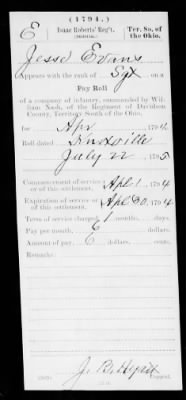 (1794.)
E Isaac Roberts' Reg't. Ter. So. of
the Ohio.
Jesse Evans
Appears with the rank of Sgt on a
Pay Roll
of a company of infantry, commanded by Wil-
liam Nash, of the Regiment of Davidson
County, Territory South of the Ohio,
for Apr 179
Roll dated Knoxville
July 22 1795
Commencement of service
or of this settlement. Apl 1, 1794
Expiration of service
or of this settlement. Apl 30, 1794
Term of service charged 1 months, days.
Pay per month, 6 dollars, cents.
Amount of pay, 6 dollars, cents.
Remarks:
J. B.
Copyist.